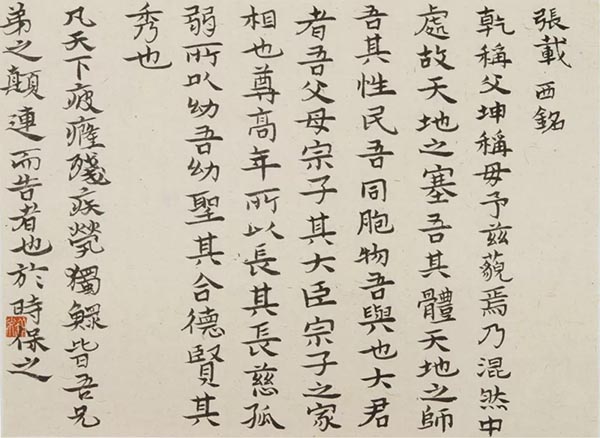 張載 西銘
乾稱父坤稱母予茲藐焉乃混然中
處故天地之塞吾其體天地之師
吾其性民吾同胞物吾與也大君
者吾父母宗子其大臣宗子之家
相也尊高年所以長其長慈孤
弱所以幼吾幼聖其合德賢其
秀也
凡天下疲癃殘疾煢獨鰥皆吾兄
弟之顛連而告者也於時保之